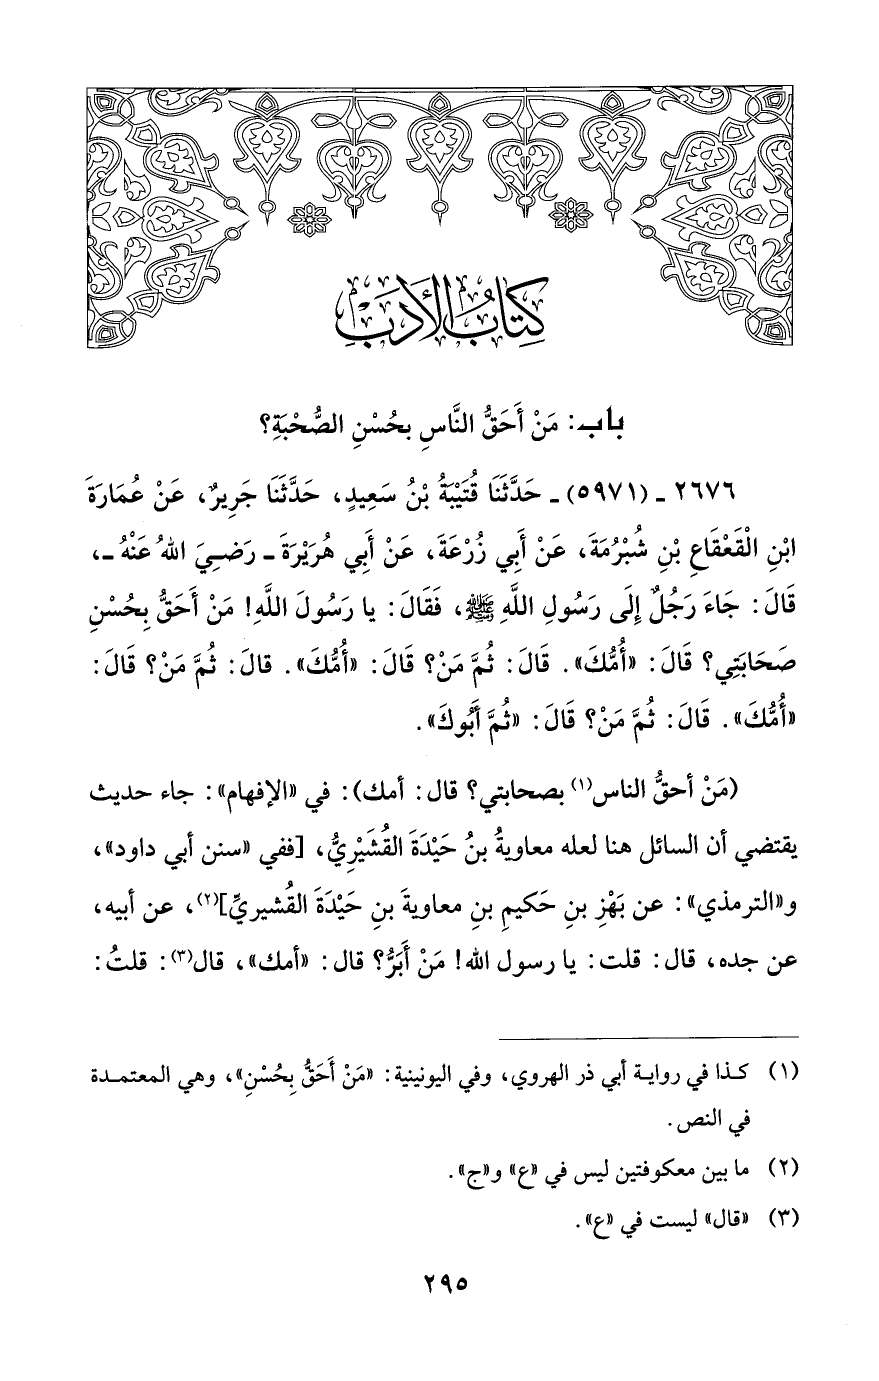 كِتَابُ الأَدَبِ
باب: مَنْ أَحَقُّ النَّاسِ بحُسْنِ الصُّحْبَةِ؟
٢٦٧٦ ـ (٥٩٧١) ـ حَدَّثَنَا قُتَيْبَةُ بْنُ سَعِيدٍ، حَدَّثَنَا جَرِيرٌ، عَنْ عُمَارَةَ
ابْنِ الْقَعْقَاعِ بْنِ شُبْرُمَةَ، عَنْ أَبِي زُرْعَةَ، عَنْ أَبي هُرَيْرَةَ ـ رَضيَ اللهُ عَنْهُ ـ،
قَالَ: جَاءَ رَجُلٌ إِلَى رَسُولِ اللَّهِ ﷺ، فَقَالَ: يا رَسُولَ اللَّهِ! مَنْ أَحَقُّ بِحُسْنِ
صَحَابَتِي؟ قَالَ: «أُمُّكَ». قَالَ: ثُمَّ مَنْ؟ قَالَ: «أُمُّكَ». قالَ: ثُمَّ مَنْ؟ قَالَ:
«أُمُّكَ». قَالَ: ثُمَّ مَنْ؟ قَالَ: «ثُمَّ أَبُوكَ».
(مَنْ أحقُّ الناس(١) بصحابتي؟ قال: أمك): في «الإفهام»: جاء حديث
يقتضي أن السائل هنا لعله معاويةُ بنُ حَيْدَةَ القُشَيْرِيُّ، [ففي «سنن أبي داود»،
و«الترمذي»: عن بَهْزِ بنِ حَكيمِ بنِ معاويةَ بنِ حَيْدَةَ القُشيريِّ](٢)، عن أبيه،
عن جده، قال: قلت: يا رسول الله! مَنْ أَبَرُّ؟ قال: «أمك»، قال(٣): قلتُ:
(١) كذا في رواية أبي ذر الهروي، وفي اليونينية: «مَنْ أَحَقُّ بِحُسْنِ»، وهي المعتمدة
في النص.
(٢) ما بين معكوفتين ليس في «ع» و«ج».
(٣) «قال» ليست في «ع».
٢٩٥